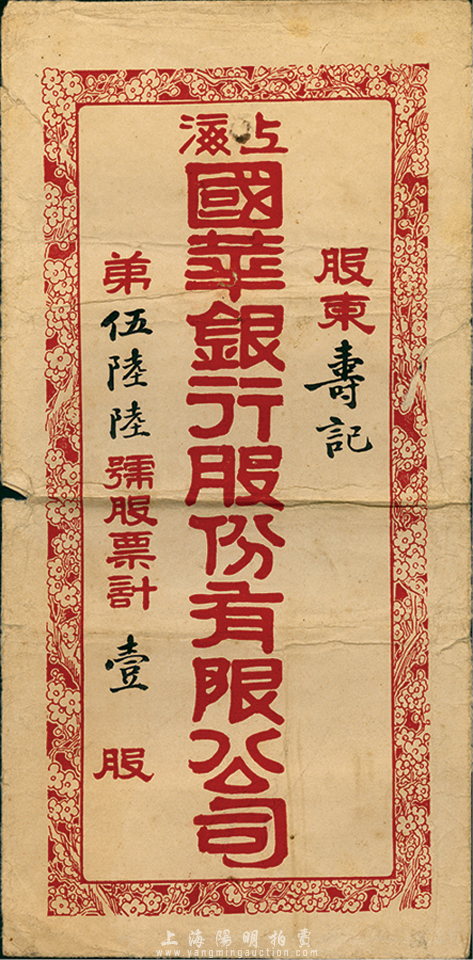 股東壽記
上海
國華銀行股份有限公司
第伍陸陸號股票計壹股
上海陽明拍賣
www.yangmingauction.com